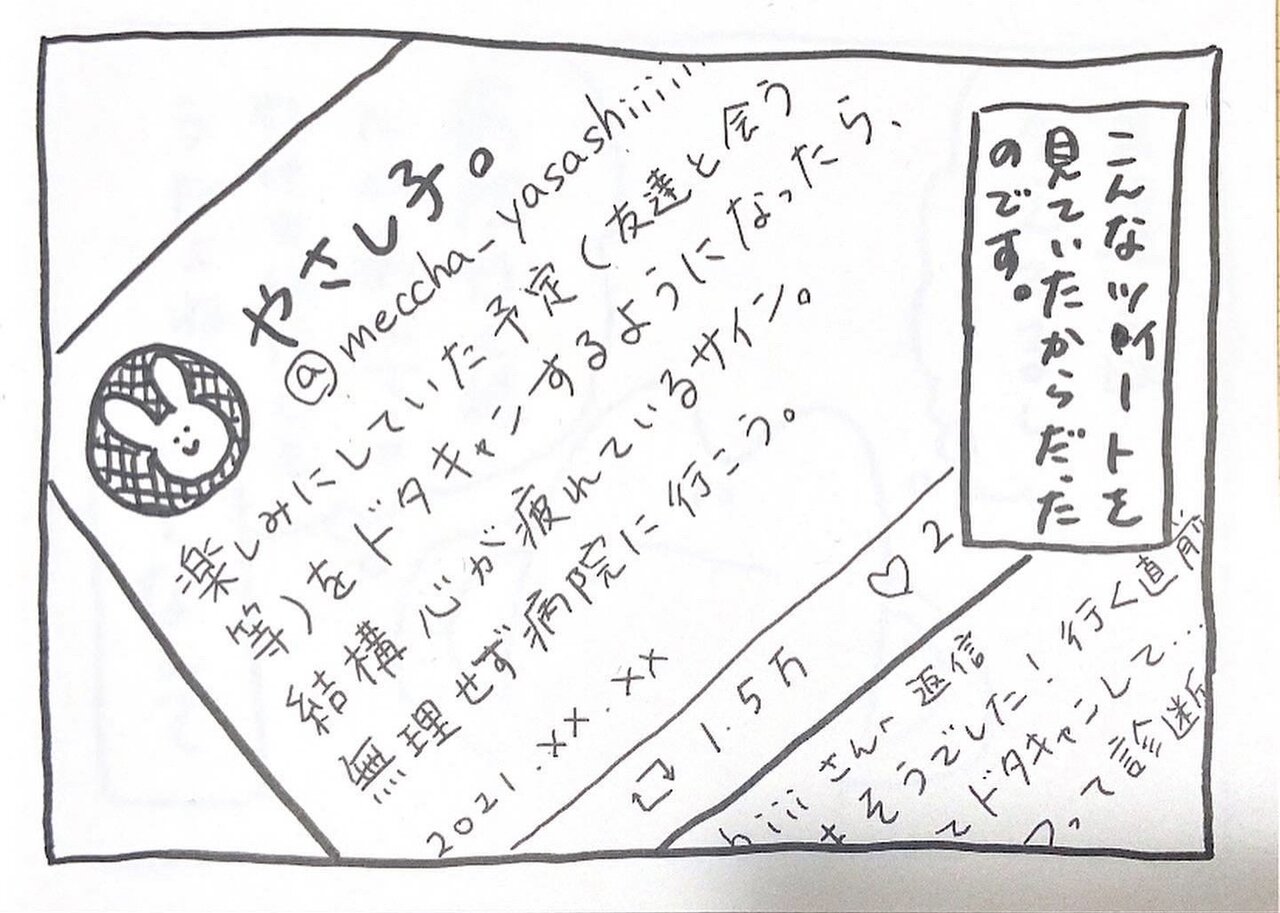 こんなツイートを
見ていたからだった
のです。
やさし子。
@meccha-yasashiiiiii
楽しみにしていた予定(友達と会う
等)をドタキャンするようになったら、
結構心が疲れているサイン。
無理せず病院に行こう。
2021.xx.xx
1.5万 ♡ 2
hiii さんへ 返信
そうでした!行く直前
てドタキャンして...
って診断